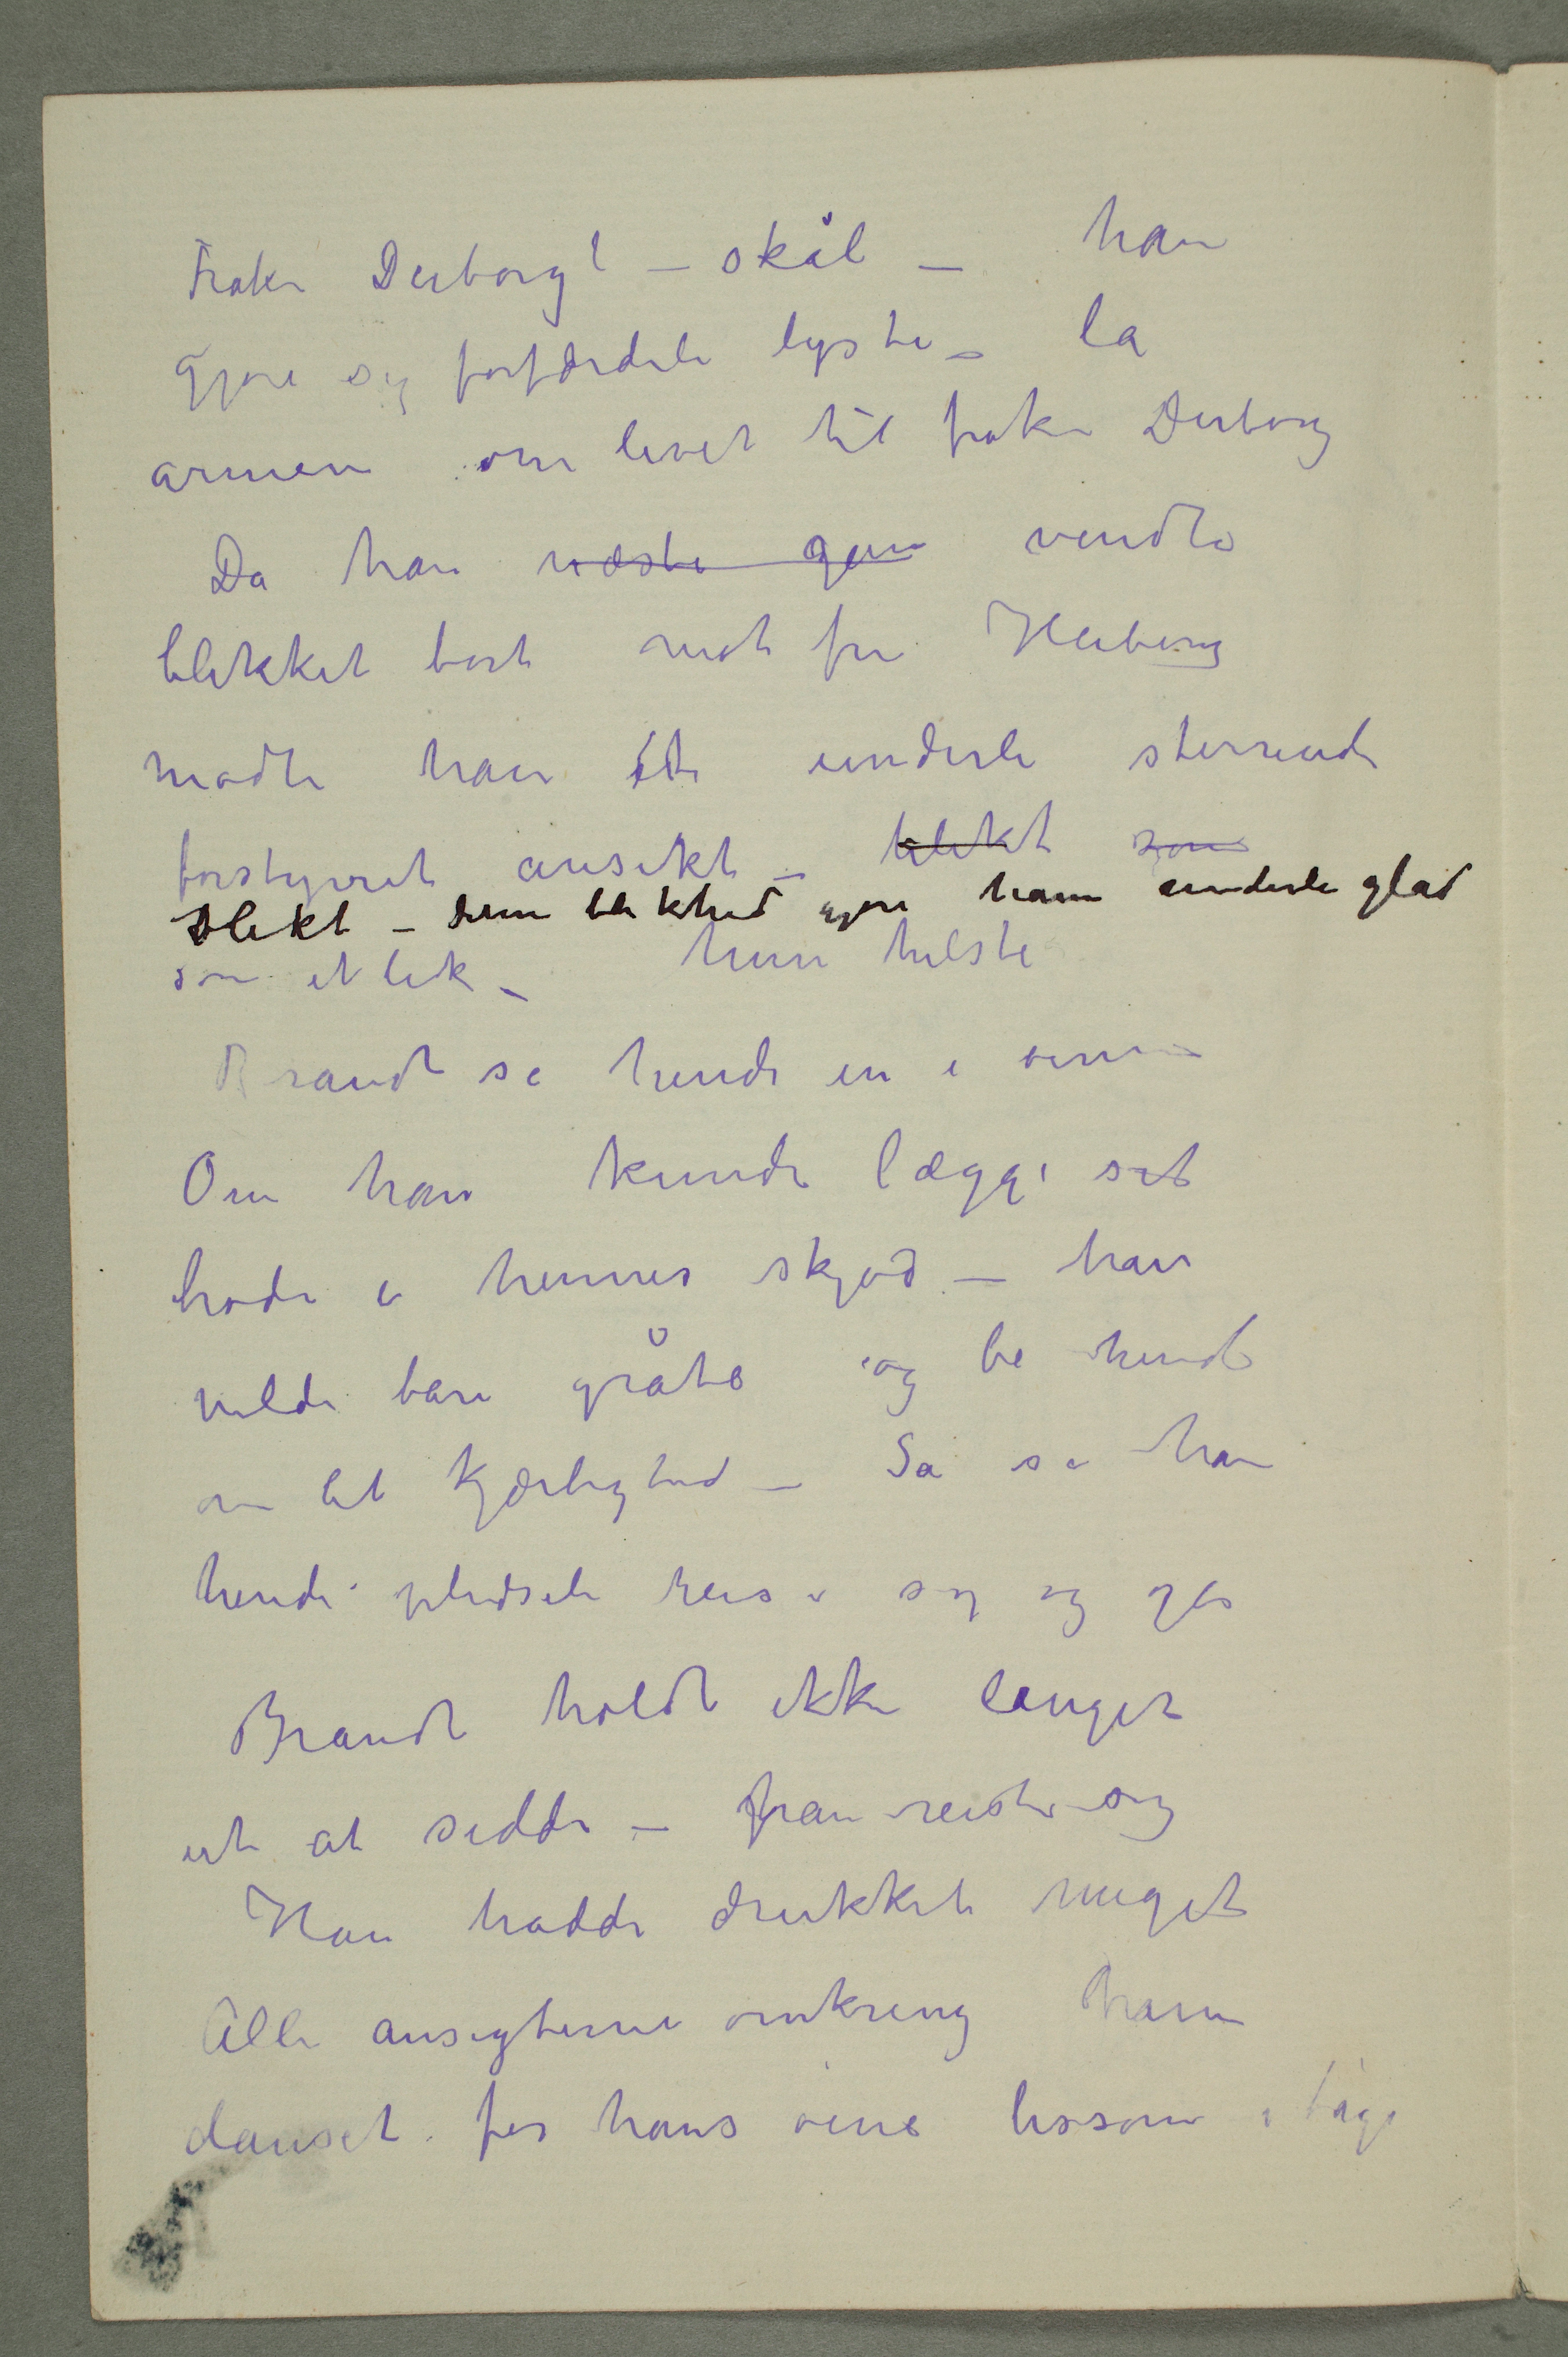 Frøken Derborg! – skål – han
gjore sig forfærdeli lysti – la
armen om livet til frøken Derborg
Da han næste gan vendte
blikket bort mot fru Heiberg
mødte han et underli stirrende
forstyrret ansikt – blekt som
Blekt – denne blekhed gjore ham underli glad
som et lik – hun hilste
Brandt så hende in i øinene
Om han kunde lægge sit
hode i hennes skjød – han
vilde bare gråte og be hende
om lit kjærlighed – Så så han
hende pludseli reise sig og gå
Brandt holdt ikke længer
ut at sidde – han reiste sig
Han hadde drukket meget
Alle ansigterne omkring ham
danset for hans øine lissom i tåge